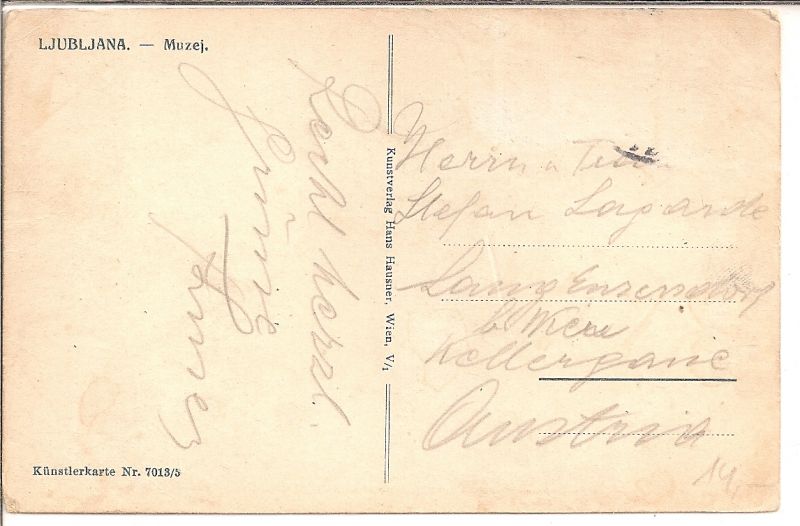 LJUBLJANA. — Muzej.
Recht herzl.
Grüße
Kunstverlag Hans Hausner, Wien, V/1
Herrn u
Stefan Lagarde
Lang Enzersdorf
b Wien
Kellergasse
Austria
Künstlerkarte Nr. 7013/5
14,-